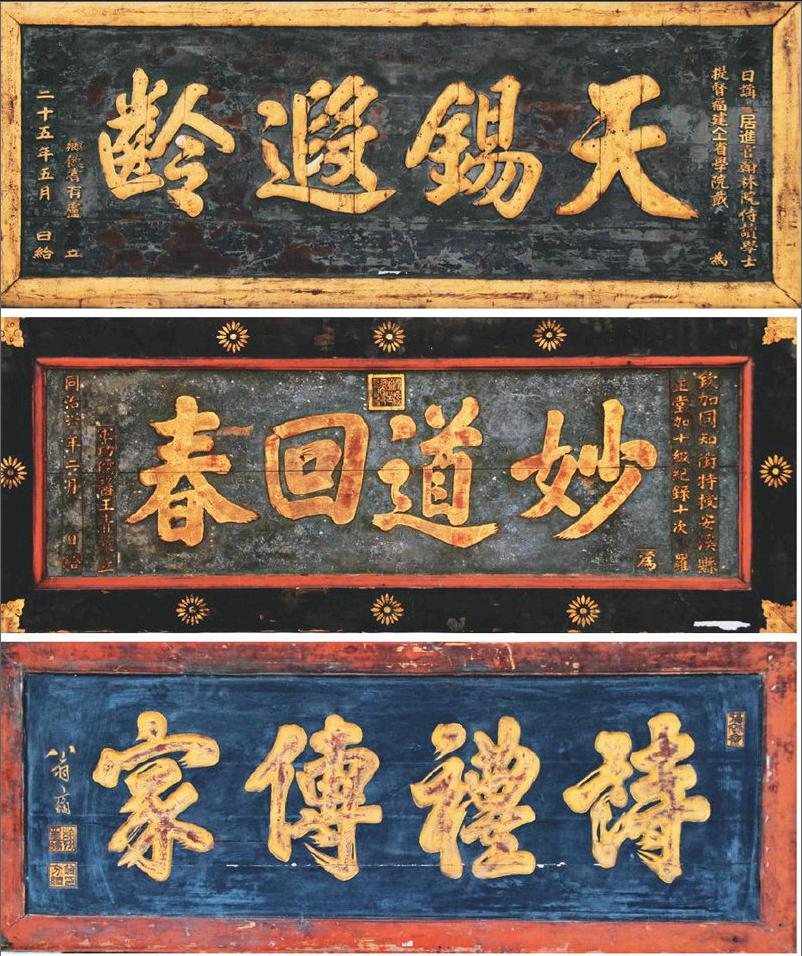 日講居進官翰林院侍讀學士
提督福建全省學院戴 為
天錫遐齡
有盧 立
二十五年五月 日給
欽加同知銜特授安溪縣
正堂加十級紀錄十次 羅
為
妙道回春
醫王 立
同治 年二月 日給
詩禮傳家